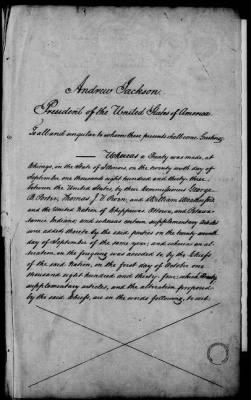 Andrew Jackson.
President of the United States of America.
To all and singular to whom these presents shall come, Greeting:
Whereas a Treaty was made, at
Chicago, in the State of Illinois, on the twenty sixth day of
September one thousand eight hundred and thirty three,
between the United States, by their Commissioners George
B. Porter, Thomas J. V. Owen, and William Weatherford
and the United Nation of Chippewa, Ottowa, and Potawa-
tamie Indians: and whereas certain supplementary articles
were added thereto by the said parties on the twenty seventh
day of September of the same year; and whereas an al-
teration in the foregoing was acceded to by the Chiefs
of the said Nation, on the first day of October one
thousand eight hundred and thirty-four; which Treaty
supplementary articles, and the alteration proposed
by the said Chiefs, are in the words following, to wit: